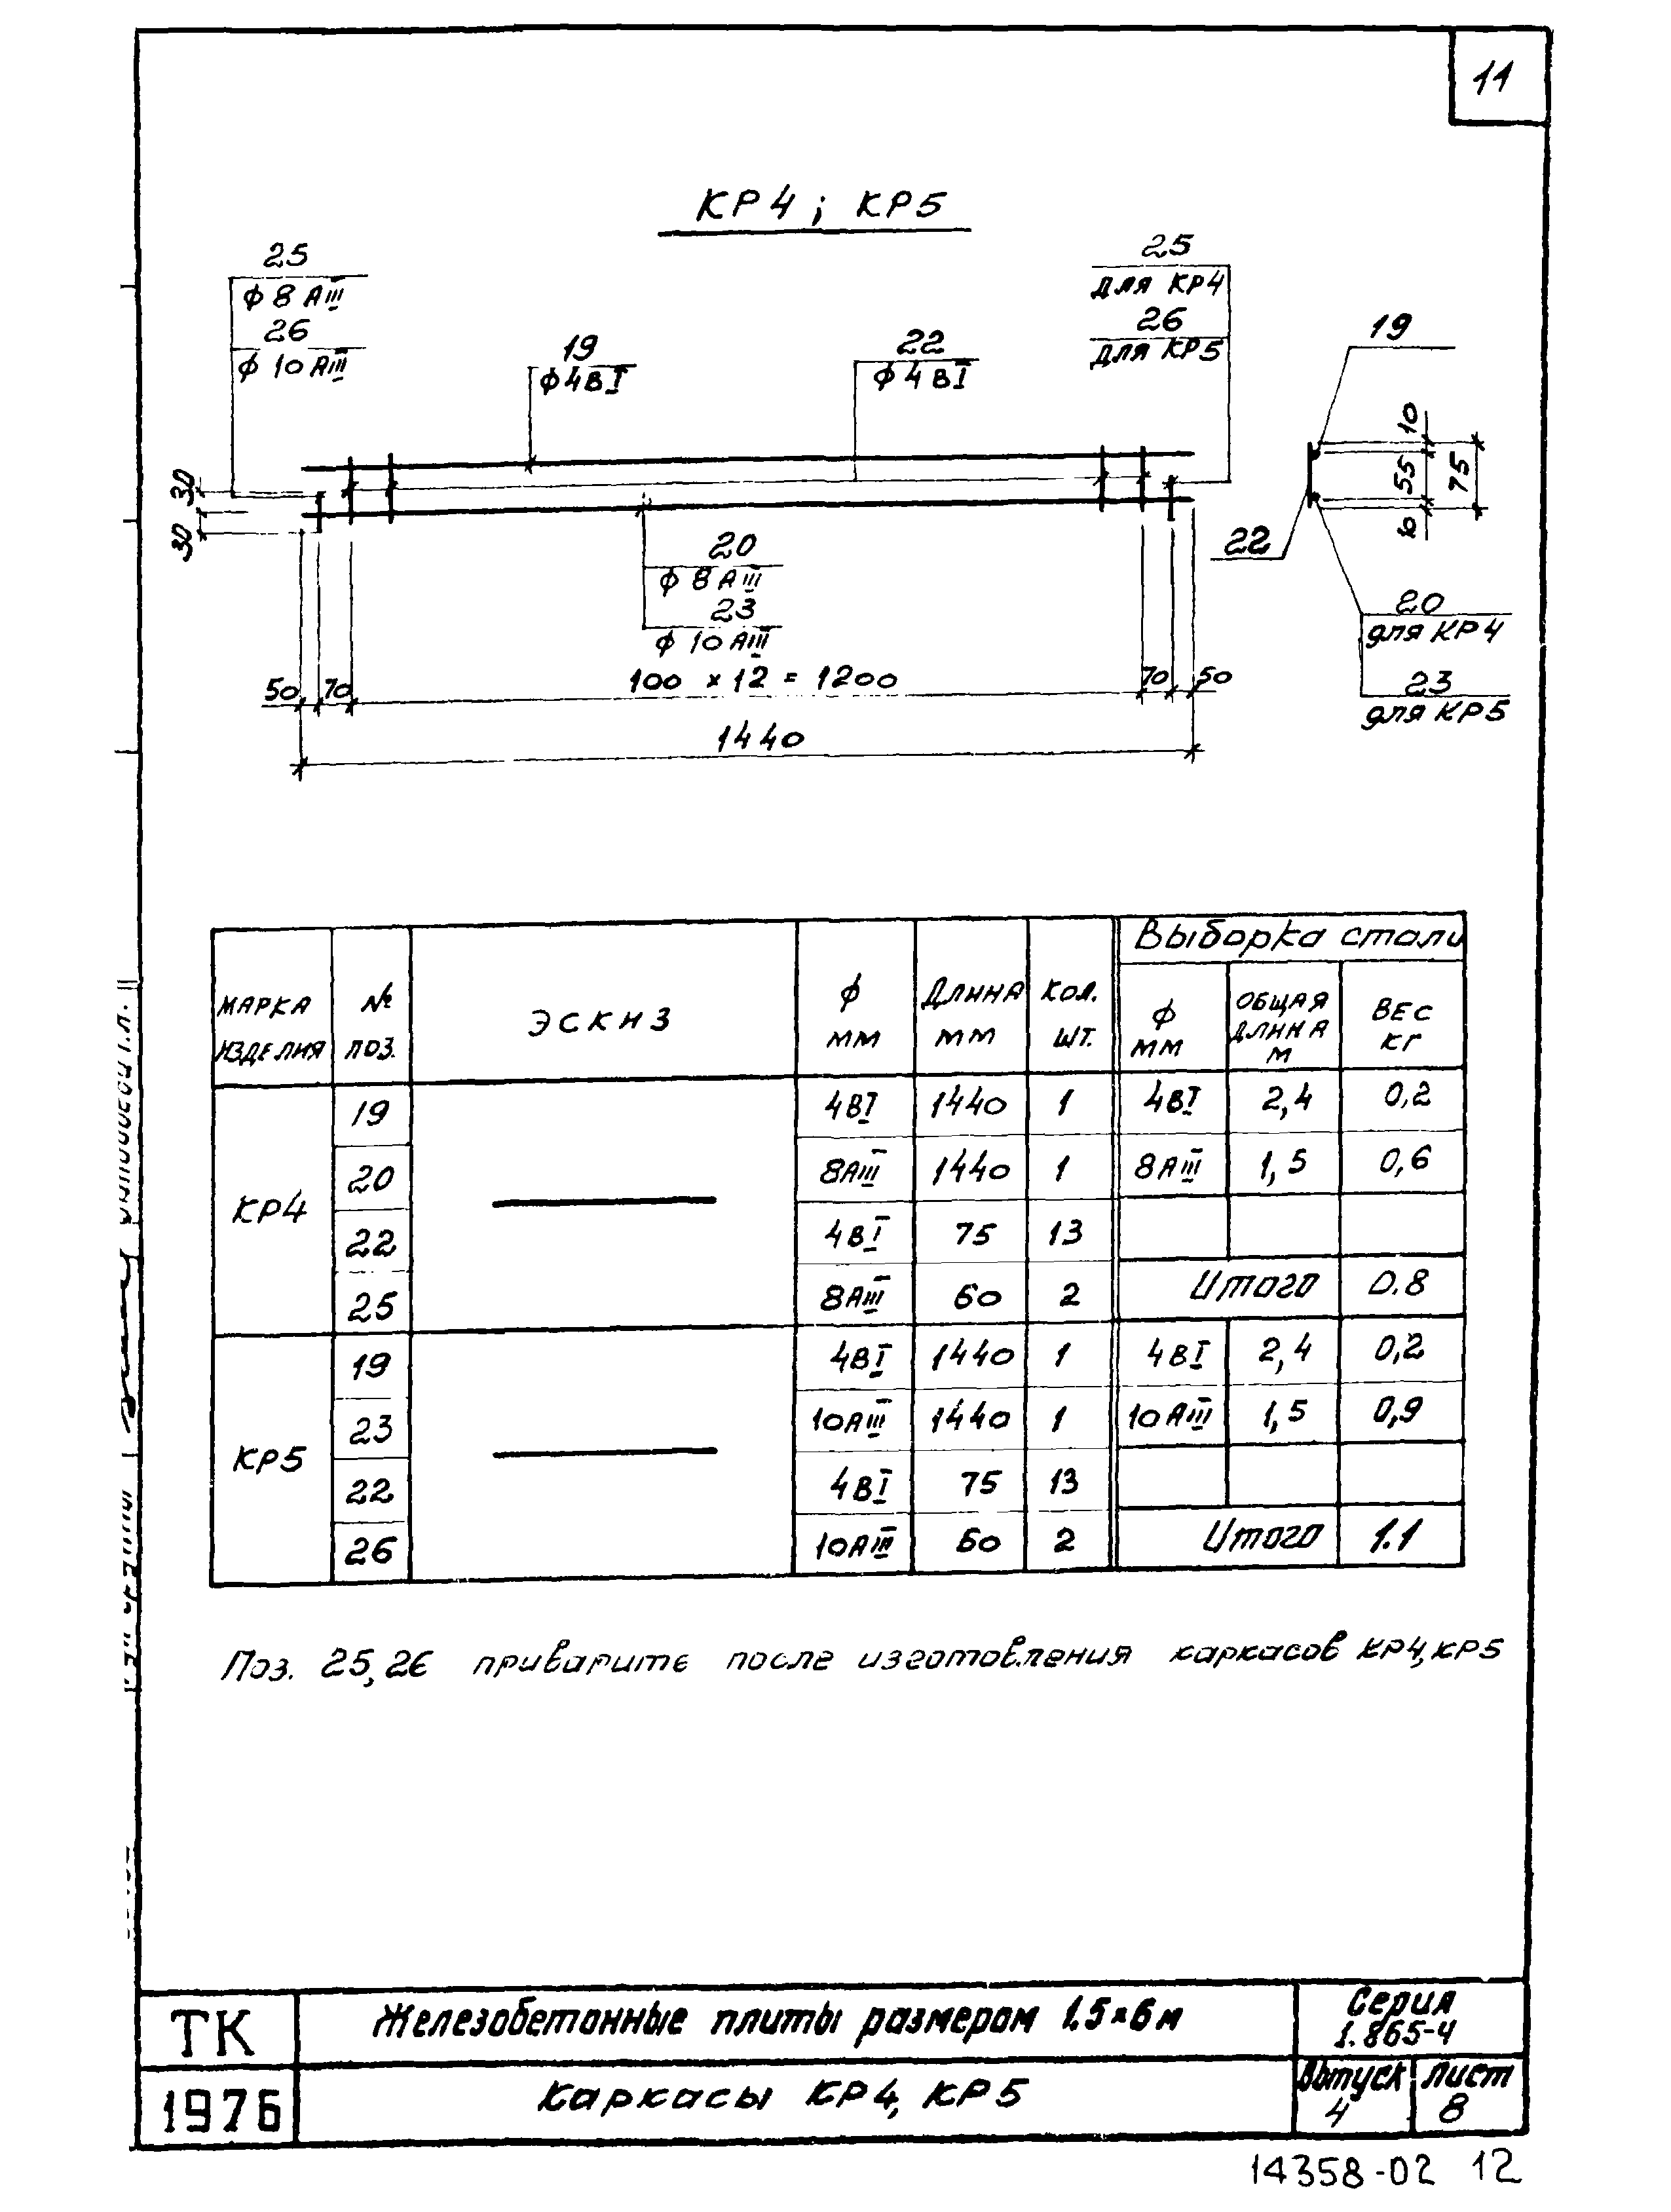 11
КР4; КР5
25
ф 8 АIII
26
ф 10 АIII
19
ф 4 ВI
22
ф 4 ВI
25
для КР4
26
для КР5
19
10
55
75
10
22
20
для КР4
23
для КР5
30
30
20
ф 8 АIII
23
ф 10 АIII
50 70 100 × 12 = 1200 70 50
1440
МАРКА ИЗДЕЛИЯ № ПОЗ. ЭСКИЗ ф мм Длина мм Кол. шт. Выборка стали
ф мм ОБЩАЯ ДЛИНА М ВЕС КГ
КР4
19 4ВI 1440 1 4ВI 2,4 0,2
20 8АIII 1440 1 8АIII 1,5 0,6
22 4ВI 75 13
25 8АIII 60 2 Итого 0.8
КР5
19 4ВI 1440 1 4ВI 2,4 0,2
23 10АIII 1440 1 10АIII 1,5 0,9
22 4ВI 75 13
26 10АIII 60 2 Итого 1.1
Поз. 25,26 приварить после изготовления каркасов КР4, КР5
ТК Железобетонные плиты размером 1.5×6 м Серия 1.865-4
1976 Каркасы КР4, КР5 Выпуск 4 Лист 8
14358-02 12